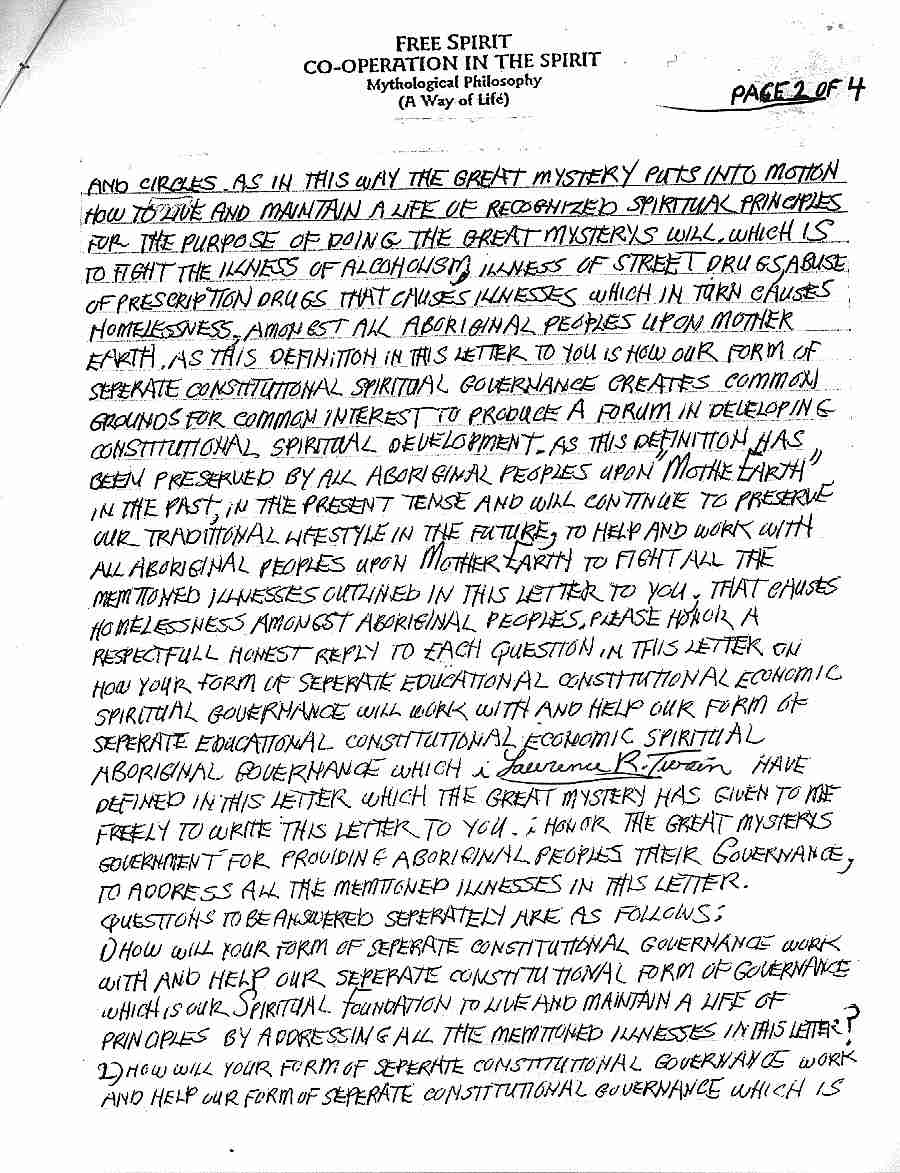 FREE SPIRIT
CO-OPERATION IN THE SPIRIT
Mythological Philosophy
(A Way of Life)
PAGE 2 OF 4
AND CIRCLES. AS IN THIS WAY THE GREAT MYSTERY PUTS INTO MOTION
HOW TO LIVE AND MAINTAIN A LIFE OF RECOGNIZED SPIRITUAL PRINCIPLES
FOR THE PURPOSE OF DOING THE GREAT MYSTERYS WILL. WHICH IS
TO FIGHT THE ILLNESS OF ALCOHOLISM, ILLNESS OF STREET DRUGS, ABUSE
OF PRESCRIPTION DRUGS THAT CAUSES ILLNESSES WHICH IN TURN CAUSES
HOMELESSNESS, AMONGST ALL ABORIGINAL PEOPLES UPON MOTHER
EARTH. AS THIS DEFINITION IN THIS LETTER TO YOU IS HOW OUR FORM OF
SEPERATE CONSTITUTIONAL SPIRITUAL GOVERNANCE CREATES COMMON
GROUNDS FOR COMMON INTEREST TO PRODUCE A FORUM IN DEVELOPING
CONSTITUTIONAL SPIRITUAL DEVELOPMENT. AS THIS DEFINITION HAS
BEEN PRESERVED BY ALL ABORIGINAL PEOPLES UPON "MOTHE EARTH"
IN THE PAST, IN THE PRESENT TENSE AND WILL CONTINUE TO PRESERVE
OUR TRADITIONAL LIFESTYLE IN THE FUTURE, TO HELP AND WORK WITH
ALL ABORIGINAL PEOPLES UPON MOTHER EARTH TO FIGHT ALL THE
MEMTIONED ILLNESSES OUTLINED IN THIS LETTER TO YOU, THAT CAUSES
HOMELESSNESS AMONGST ABORIGINAL PEOPLES. PLEASE HONOR A
RESPECTFULL HONEST REPLY TO EACH QUESTION IN THIS LETTER ON
HOW YOUR FORM OF SEPERATE EDUCATIONAL CONSTITUTIONAL ECONOMIC
SPIRITUAL GOVERNANCE WILL WORK WITH AND HELP OUR FORM OF
SEPERATE EDUCATIONAL CONSTITUTIONAL ECONOMIC SPIRITUAL
ABORIGINAL GOVERNANCE WHICH i Lawrence R. Twain HAVE
DEFINED IN THIS LETTER WHICH THE GREAT MYSTERY HAS GIVEN TO ME
FREELY TO WRITE THIS LETTER TO YOU. i HONOR THE GREAT MYSTERYS
GOVERNMENT FOR PROVIDING ABORIGINAL PEOPLES THEIR GOVERNANCE,
TO ADDRESS ALL THE MEMTIONED ILLNESSES IN THIS LETTER.
QUESTIONS TO BE ANSWERED SEPERATELY ARE AS FOLLOWS;
1) HOW WILL YOUR FORM OF SEPERATE CONSTITUTIONAL GOVERNANCE WORK
WITH AND HELP OUR SEPERATE CONSTITUTIONAL FORM OF GOVERNANCE
WHICH IS OUR SPIRITUAL FOUNDATION TO LIVE AND MAINTAIN A LIFE OF
PRINCIPLES BY ADDRESSING ALL THE MEMTIONED ILLNESSES IN THIS LETTER?
2) HOW WILL YOUR FORM OF SEPERATE CONSTITUTIONAL GOVERNANCE WORK
AND HELP OUR FORM OF SEPERATE CONSTITUTIONAL GOVERNANCE WHICH IS